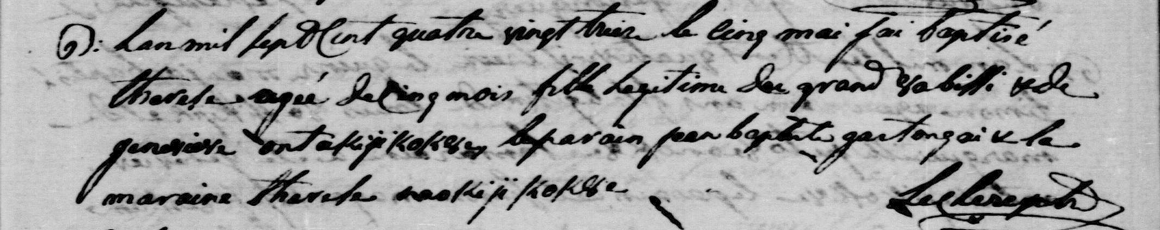 9: Lan mil Sept Cent quatre vingt treize le Cinq mai jai baptisé
therese agée de Cinq mois fille Legitime de grand 8abissi & de
genevieve ontakijikok8e, le parain jean baptiste & la
maraine therese naokijikok8e